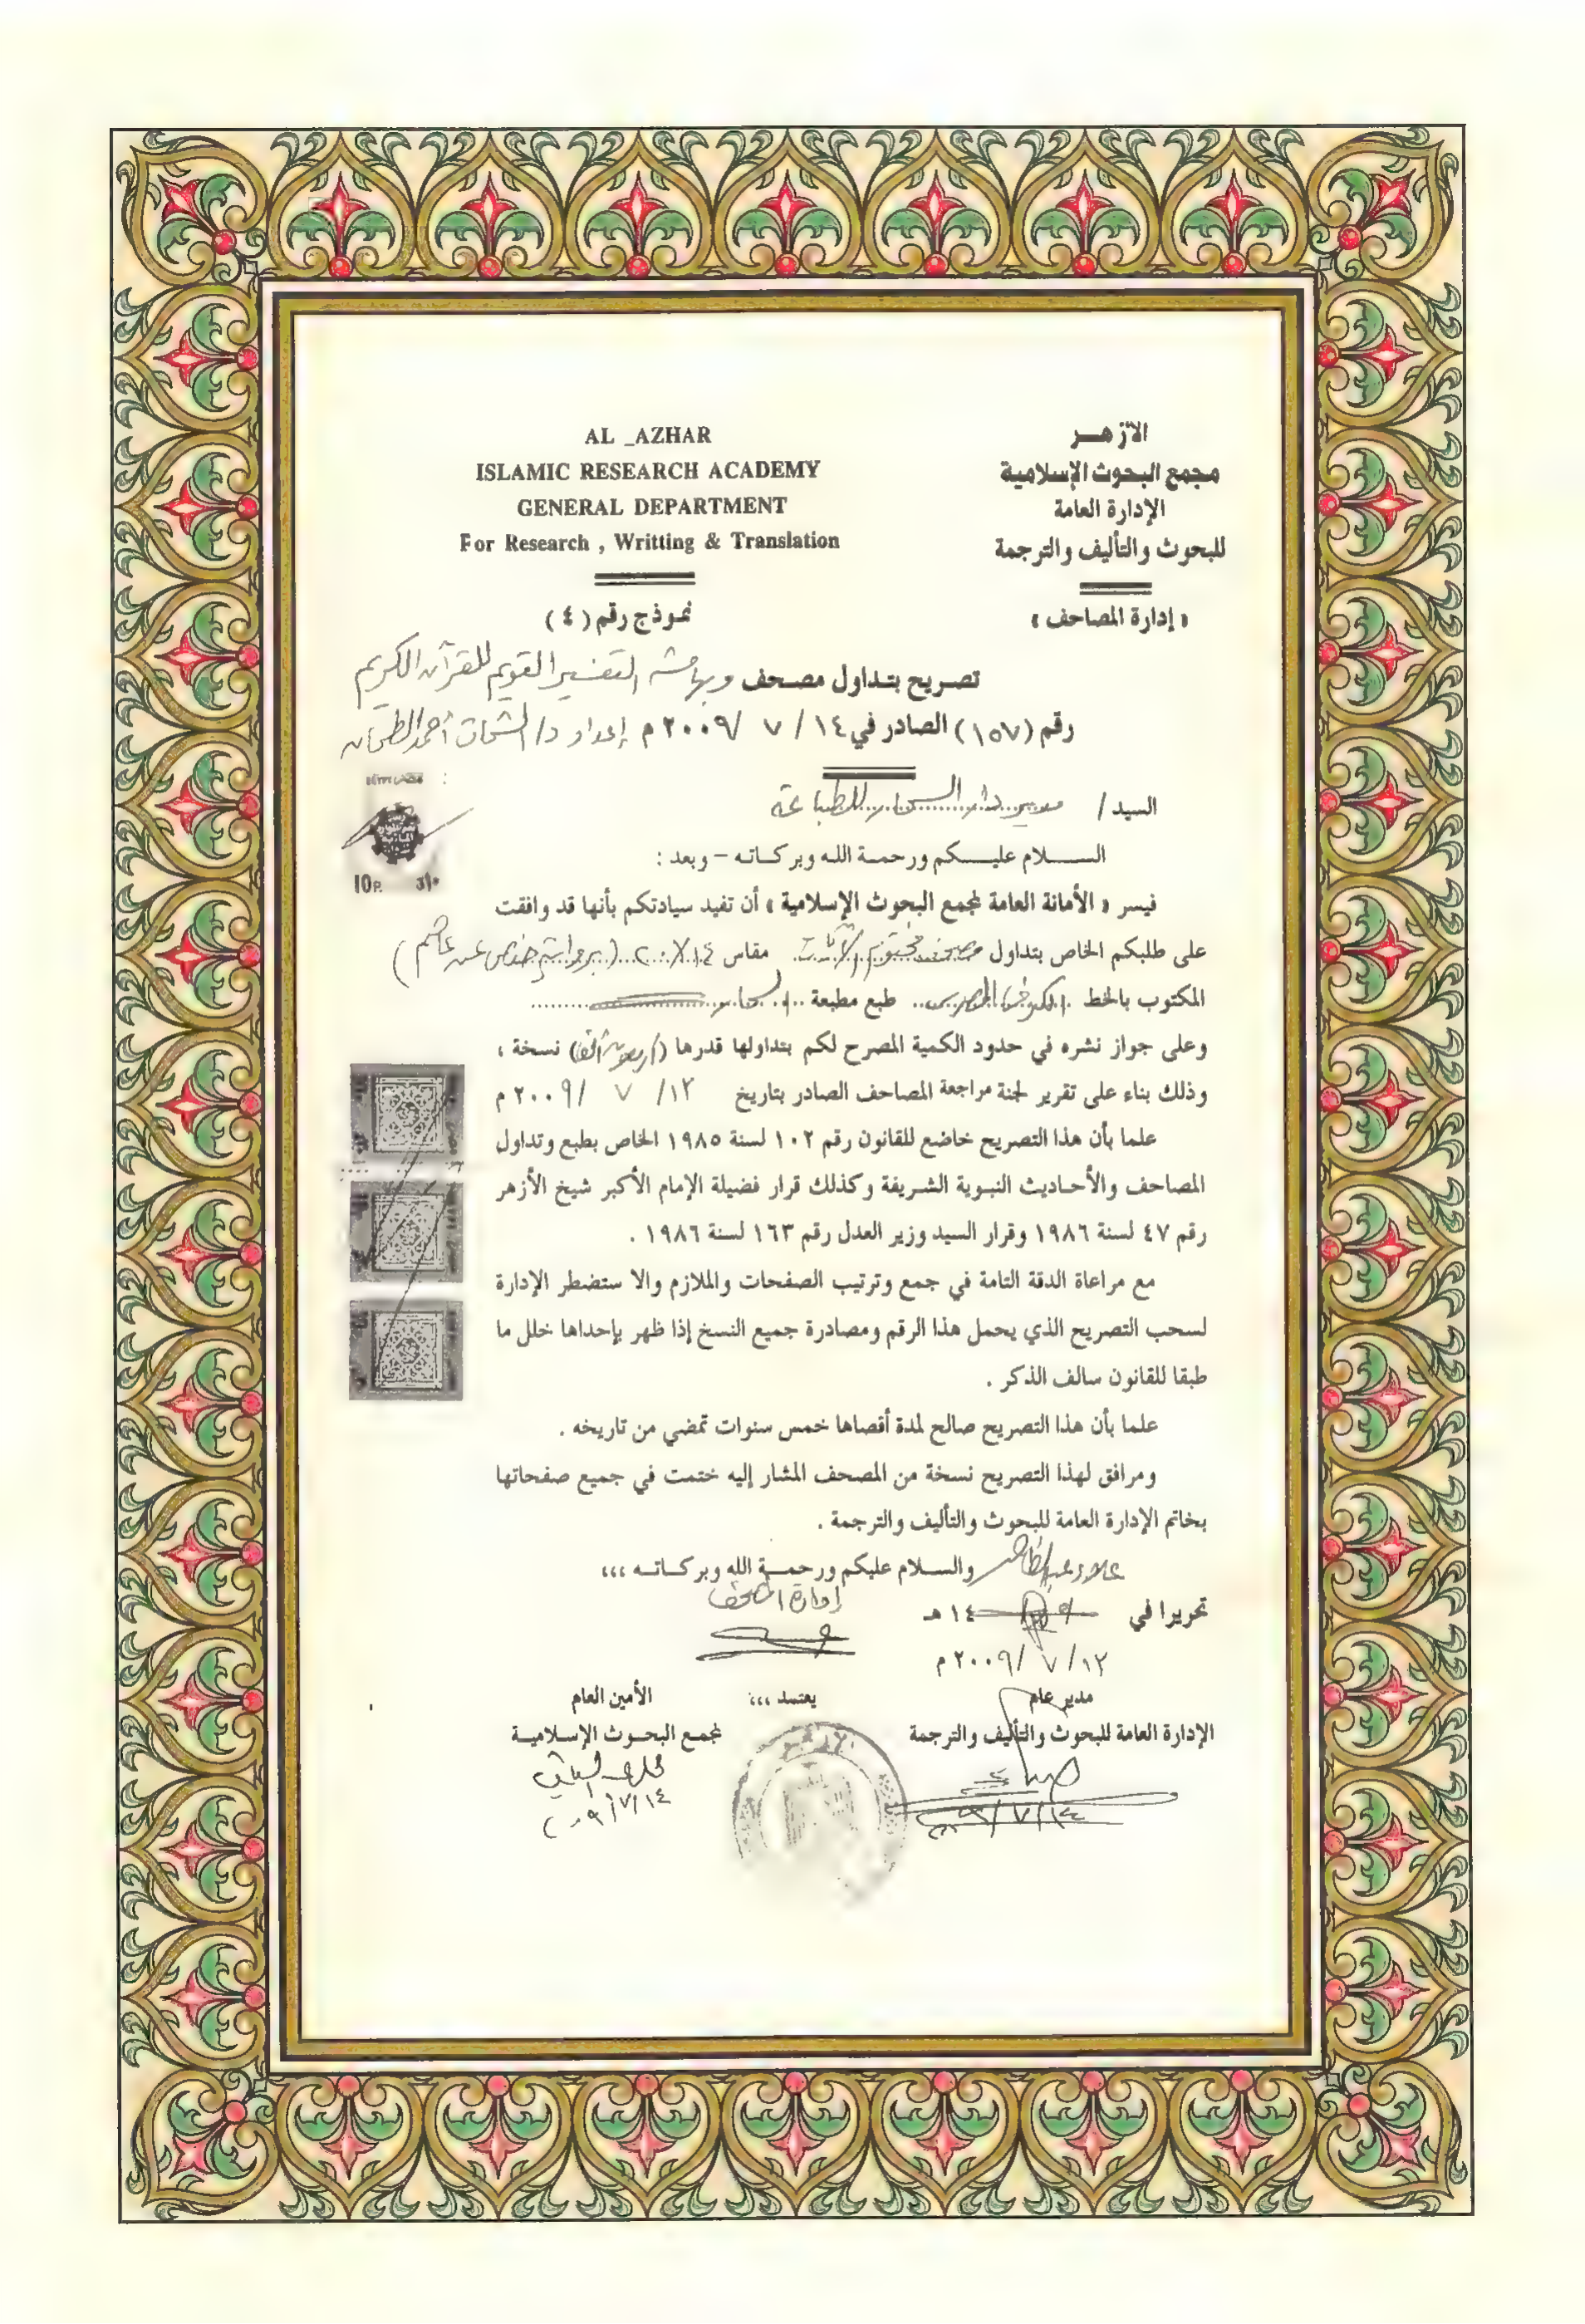 AL _AZHAR
ISLAMIC RESEARCH ACADEMY
GENERAL DEPARTMENT
For Research , Writting & Translation
الأزهــر
مجمع البحوث الإسلامية
الإدارة العامة
للبحوث والتأليف والترجمة
« إدارة المصاحف »
نموذج رقم ( ٤ )
تصريح بتداول مصحف وبهامشه التفسير القويم للقرآن الكريم
رقم (١٥٧) الصادر في ١٤ / ٧ / ٢٠٠٩ م إعداد د/ الشحات أحمد الطحان
السيد / مدير دار للطباعة
السلام عليكم ورحمة الله وبركاته – وبعد :
فيسر « الأمانة العامة لمجمع البحوث الإسلامية » أن تفيد سيادتكم بأنها قد وافقت
على طلبكم الخاص بتداول مصحف الآيات مقاس ١٤ × ٢٠ (برواية حفص عن عاصم)
المكتوب بالخط طبع مطبعة
وعلى جواز نشره في حدود الكمية المصرح لكم بتداولها قدرها ( ) نسخة ،
وذلك بناء على تقرير لجنة مراجعة المصاحف الصادر بتاريخ ١٢ / ٧ / ٢٠٠٩ م
علما بأن هذا التصريح خاضع للقانون رقم ١٠٢ لسنة ١٩٨٥ الخاص بطبع وتداول
المصاحف والأحاديث النبوية الشريفة وكذلك قرار فضيلة الإمام الأكبر شيخ الأزهر
رقم ٤٧ لسنة ١٩٨٦ وقرار السيد وزير العدل رقم ١٦٣ لسنة ١٩٨٦ .
مع مراعاة الدقة التامة في جمع وترتيب الصفحات والملازم والا ستضطر الإدارة
لسحب التصريح الذي يحمل هذا الرقم ومصادرة جميع النسخ إذا ظهر بإحداها خلل ما
طبقا للقانون سالف الذكر .
علما بأن هذا التصريح صالح لمدة أقصاها خمس سنوات تمضي من تاريخه .
ومرافق لهذا التصريح نسخة من المصحف المشار إليه ختمت في جميع صفحاتها
بخاتم الإدارة العامة للبحوث والتأليف والترجمة .
والسلام عليكم ورحمة الله وبركاته ،،،
إدارة المصاحف
تحريرا في ١٤ هـ
١٢ / ٧ / ٢٠٠٩ م
مدير عام
الإدارة العامة للبحوث والتأليف والترجمة
يعتمد ،،،
الأمين العام
لمجمع البحوث الإسلامية
١٤ / ٧ / ٢٠٠٩
10P.